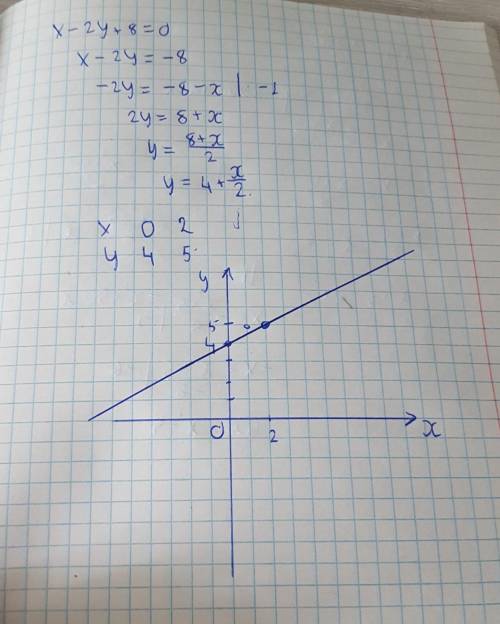 x - 2y + 8 = 0
x - 2y = -8
-2y = -8 - x | -1
2y = 8 + x
y = \frac{8+x}{2}
y = 4 + \frac{x}{2}
x 0 2
y 4 5
y
5
4
0
2
x